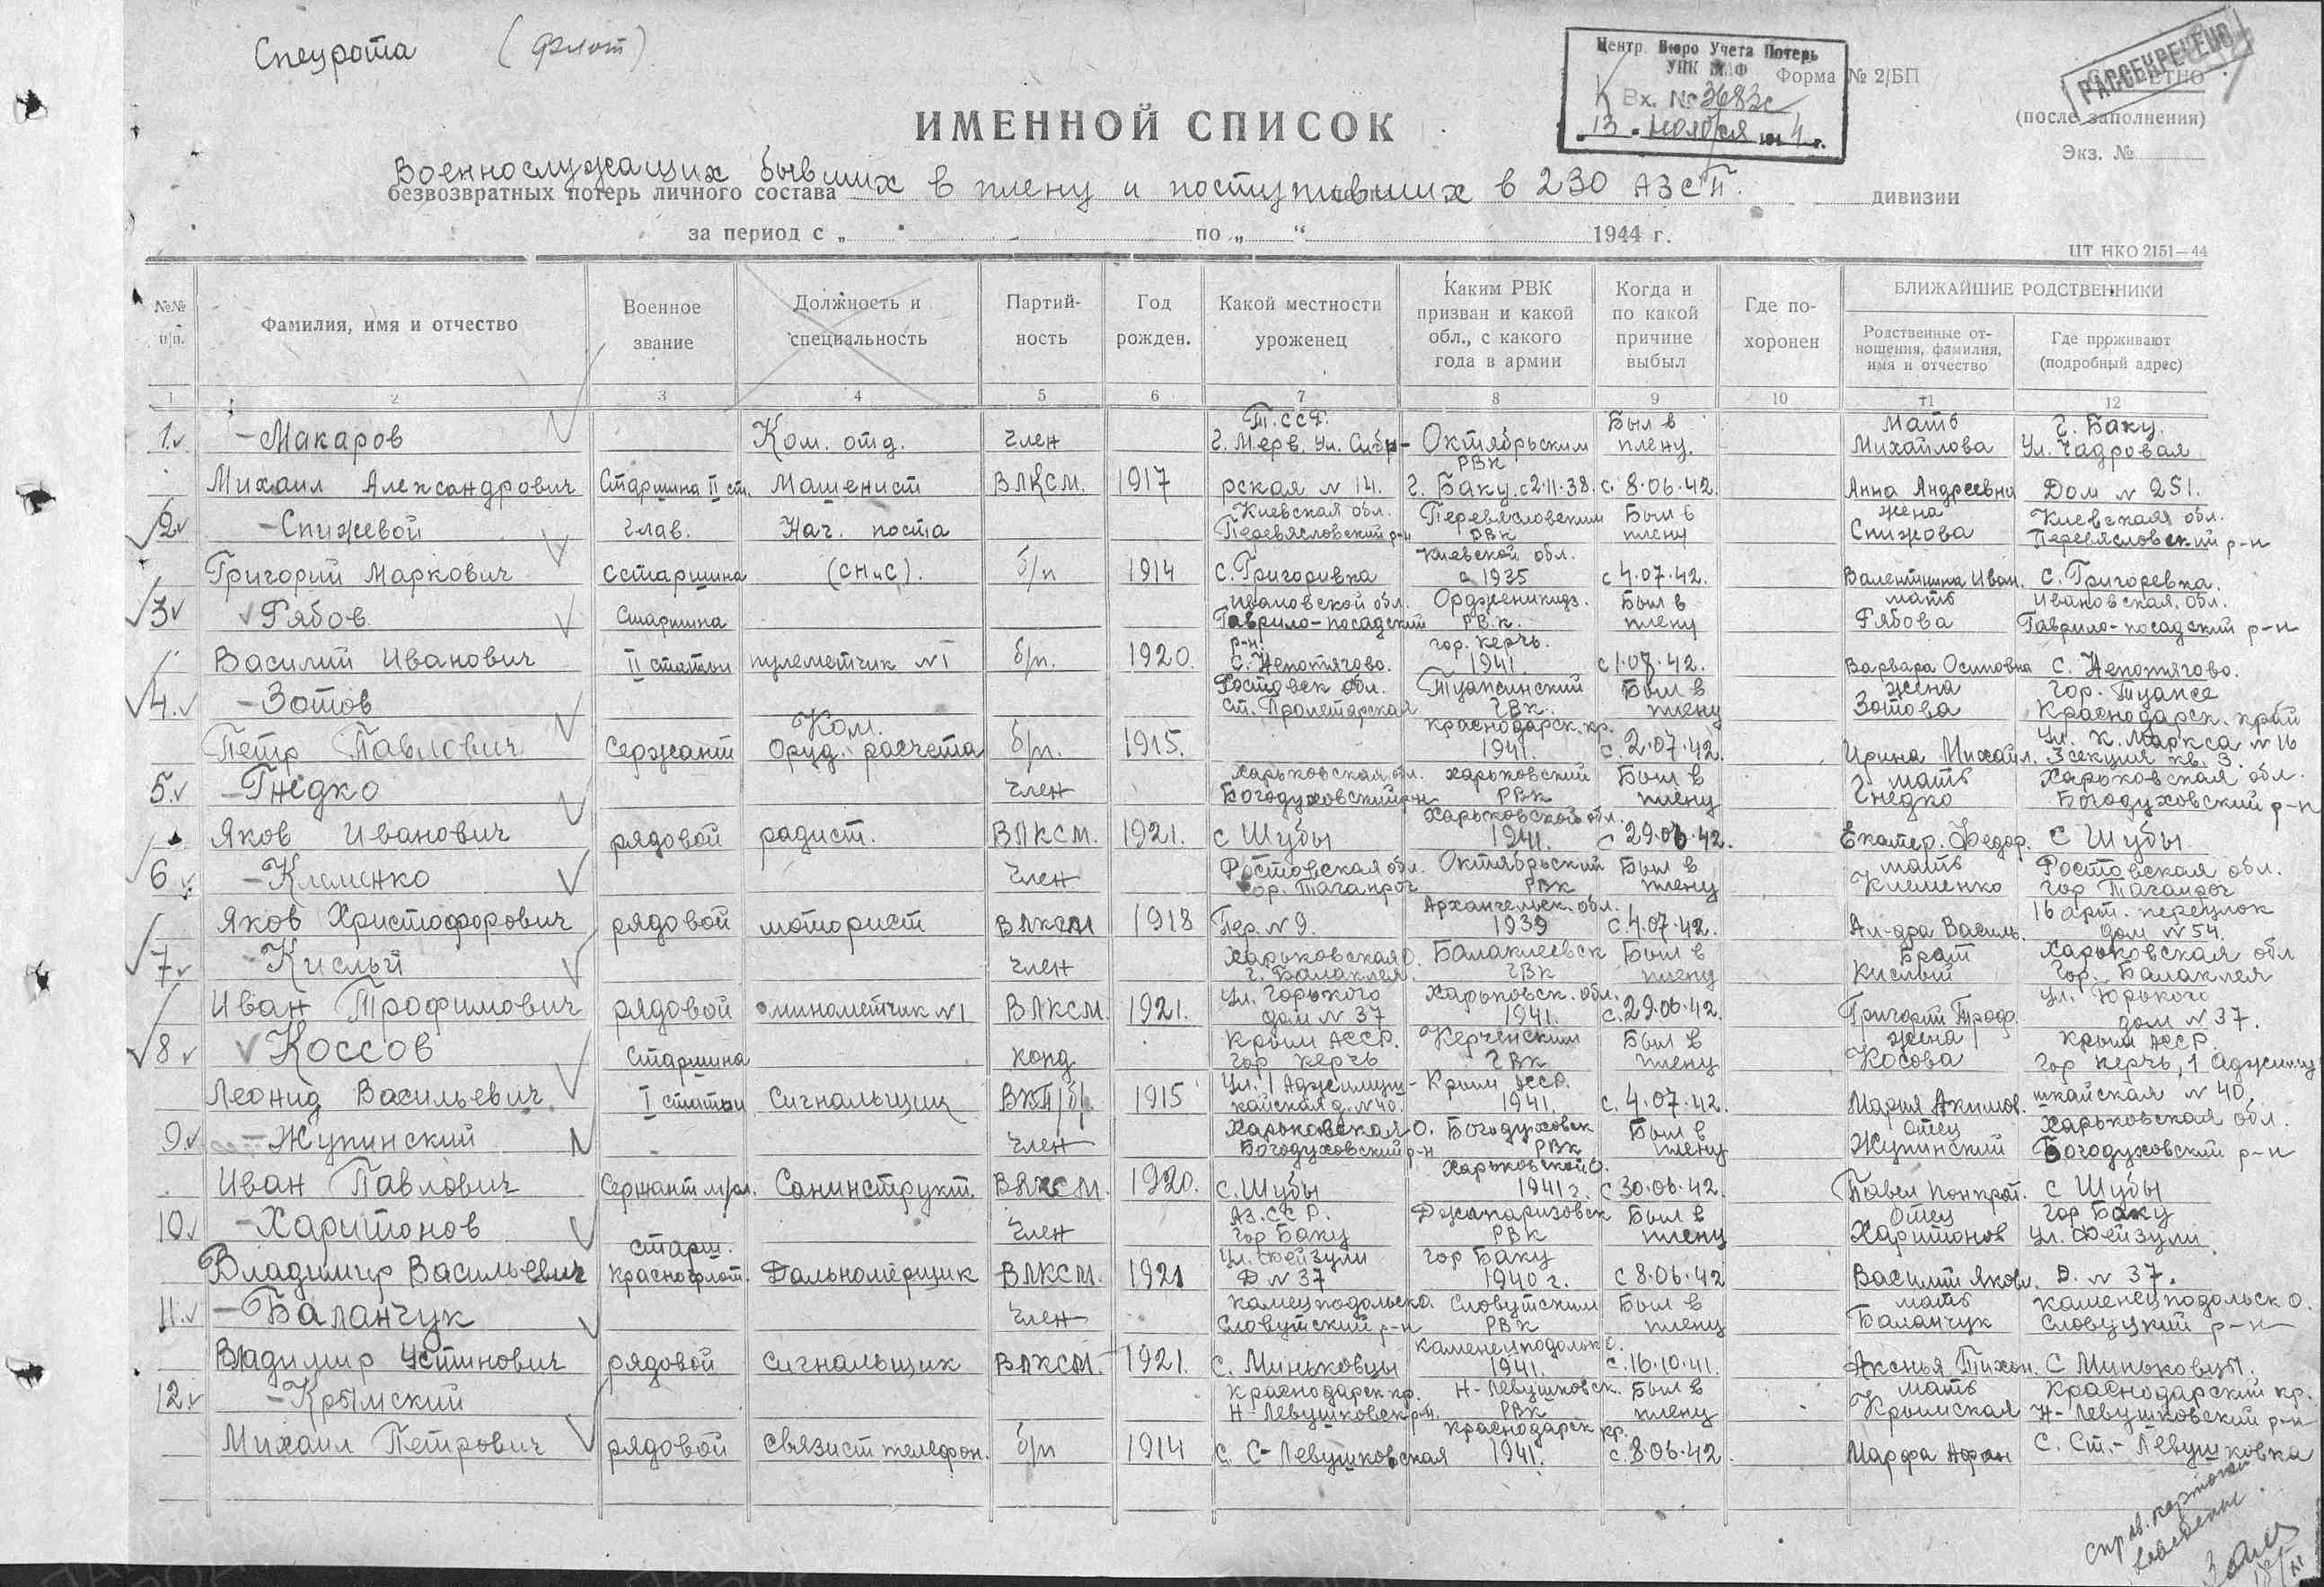 Спецрота (флот)
Центр. Бюро Учета Потерь
УПК
Вх. № 2683с
13 ноября 1944 г.
Форма № 2/БП
РАССЕКРЕЧЕНО
(после заполнения)
Экз. №
ИМЕННОЙ СПИСОК
Военнослужащих бывших в плену и поступивших в 230 АЗСП.
безвозвратных потерь личного состава дивизии
за период с „ по „ “ 1944 г.
ЦТ НКО 2151—44
№№ п/п. Фамилия, имя и отчество Военное звание Должность и специальность Партий- ность Год рожден. Какой местности уроженец Каким РВК призван и какой обл., с какого года в армии Когда и по какой причине выбыл Где по- хоронен БЛИЖАЙШИЕ РОДСТВЕННИКИ
Родственные от- ношения, фамилия, имя и отчество Где проживают (подробный адрес)
1 2 3 4 5 6 7 8 9 10 11 12
1. Макаров Михаил Александрович Старшина II ст. Ком. отд. Машенист член ВЛКСМ. 1917 Т.ССР. г. Мерв. Ул. Сибирская N 14. Октябрьским РВК г. Баку. с 2.11.38. Был в плену. с 8.06.42. Мать Михайлова Анна Андреевна г. Баку. Ул. Чадровая Дом N 251.
2. Спижевой Григорий Маркович Глав. сстаршина Нач. поста (СНиС). б/п 1914 Киевская обл. Перевясловский р-н с. Григоривка Перевясловским РВК Киевской обл. с 1935 Был в плену с 4.07.42. жена Спижова Валентина Иван. Киевская обл. Перевясловский р-н с. Григоревка.
3 Рябов Василий Иванович Старшина II статьи пулеметчик N1 б/п. 1920. Ивановской обл. Гаврило-посадский р-н. с. Непотягово. Орджоникидз. РВК. гор. Керчь. 1941. Был в плену с 1.07.42. мать Рябова Варвара Осиповна Ивановская. обл. Гаврило-посадский р-н с. Непотягово.
4. Зотов Петр Павлович Сержант Ком. оруд. расчета б/п. 1915. Ростовск обл. ст. Пролетарская Туапсинский ГВК. Краснодарск. кр. 1941. Был в плену с. 2.07.42. жена Зотова Ирина Михайл. гор. Туапсе Краснодарск. край ул. К. Маркса N 16 3 секция кв. 3.
5. Гнедко Яков Иванович рядовой радист. член ВЛКСМ. 1921. Харьковская обл. Богодуховский р-н с Шубы Харьковский РВК Харьковской обл. 1941. Был в плену с 29.06.42. мать Гнедко Екатер. Федор. Харьковская обл. Богодуховский р-н с Шубы
6. Клеменко Яков Христофорович рядовой моторист член ВЛКСМ 1918 Ростовская обл. гор. Таганрог Пер. N 9. Октябрьский РВК Архангельск. обл. 1939 Был в плену с. 4.07.42. мать Клеменко Ал-дра Василь. Ростовская обл. гор Таганрог 16 арт. переулок дом N 54.
7. Кислый Иван Трофимович рядовой минометчик N1 член ВЛКСМ. 1921. Харьковская О. г. Балаклея. ул. Горького дом N 37 Балаклеевск ГВК Харьковск. обл. 1941. Был в плену с. 29.06.42. Брат Кислый Григорий Троф. Харьковская обл гор. Балаклея ул. Горького дом N 37.
8. Коссов Леонид Васильевич. Старшина I статьи Сигнальщик канд ВКП/б/. 1915 Крым АССР. гор Керчь ул. 1 Аджимушкайская д. N 40. Керченским ГВК Крым АССР. 1941. Был в плену с. 4.07.42. жена Косова Мария Акимов. Крым АССР. гор Керчь, 1 Аджимушкайская N 40.
9. Жупинский Иван Павлович Сержант мл. Санинструкт. член ВЛКСМ. 1920. Харьковская О. Богодуховский р-н с. Шубы Богодуховск РВК Харьковской О. 1941 г. Был в плену с 30.06.42. отец Жупинский Павел Понкрат. Харьковская обл. Богодуховский р-н с Шубы
10. Харитонов Владимир Васильевич старш. краснофлот. Дальномерщик член ВЛКСМ. 1921 Аз.ССР. гор Баку ул. Фейзули Д N 37 Джапаризовск РВК гор Баку 1940 г. Был в плену с 8.06.42 Отец Харитонов Василий Яковл. гор Баку ул. Фейзули. Д. N 37.
11. Баланчук Владимир Устинович рядовой сигнальщик член ВЛКСМ. 1921. Камецподольск О. Словутский р-н с. Миньковцы Словутским РВК Каменецподольск О. 1941. Был в плену с. 16.10.41. мать Баланчук Аксенья Тихон. Каменецподольск О. Словуцкий р-н с Миньковцы.
12. Крымский Михаил Петрович рядовой связист телефон. б/п 1914 Краснодарск кр. Н-Левушковск р-н. с. С-Левушковская Н-Левушковск. РВК Краснодарск кр. 1941. Был в плену с. 8.06.42 мать Крымская Марфа Афан Краснодарский кр. Н-Левушковский р-н с. Ст.-Левушковка